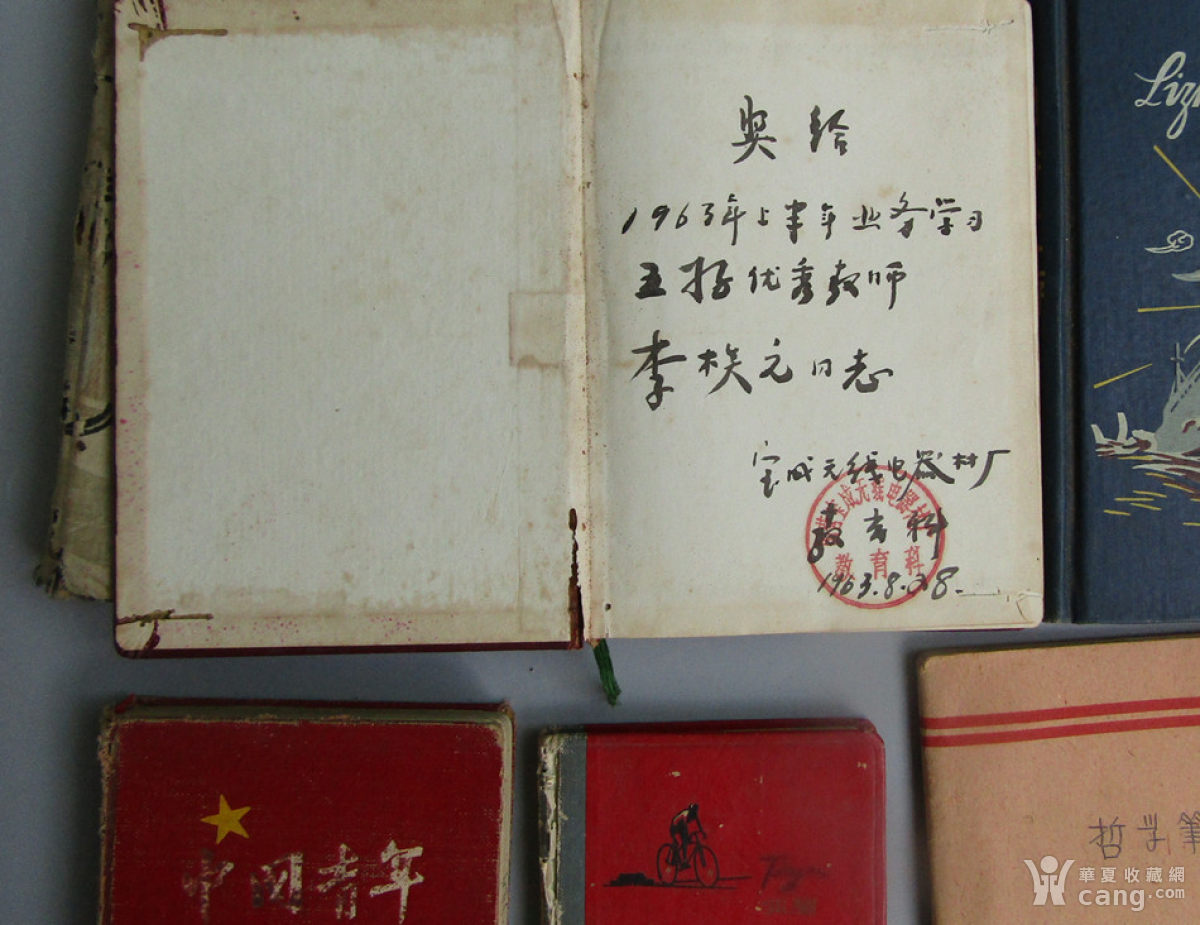 奖给
1963年上半年业务学习
五好优秀教师
李桉元同志
宝成无线电器材厂
教育科
教育科
1963.8.28.
中国青年
哲学笔
華夏收藏網
cang.com